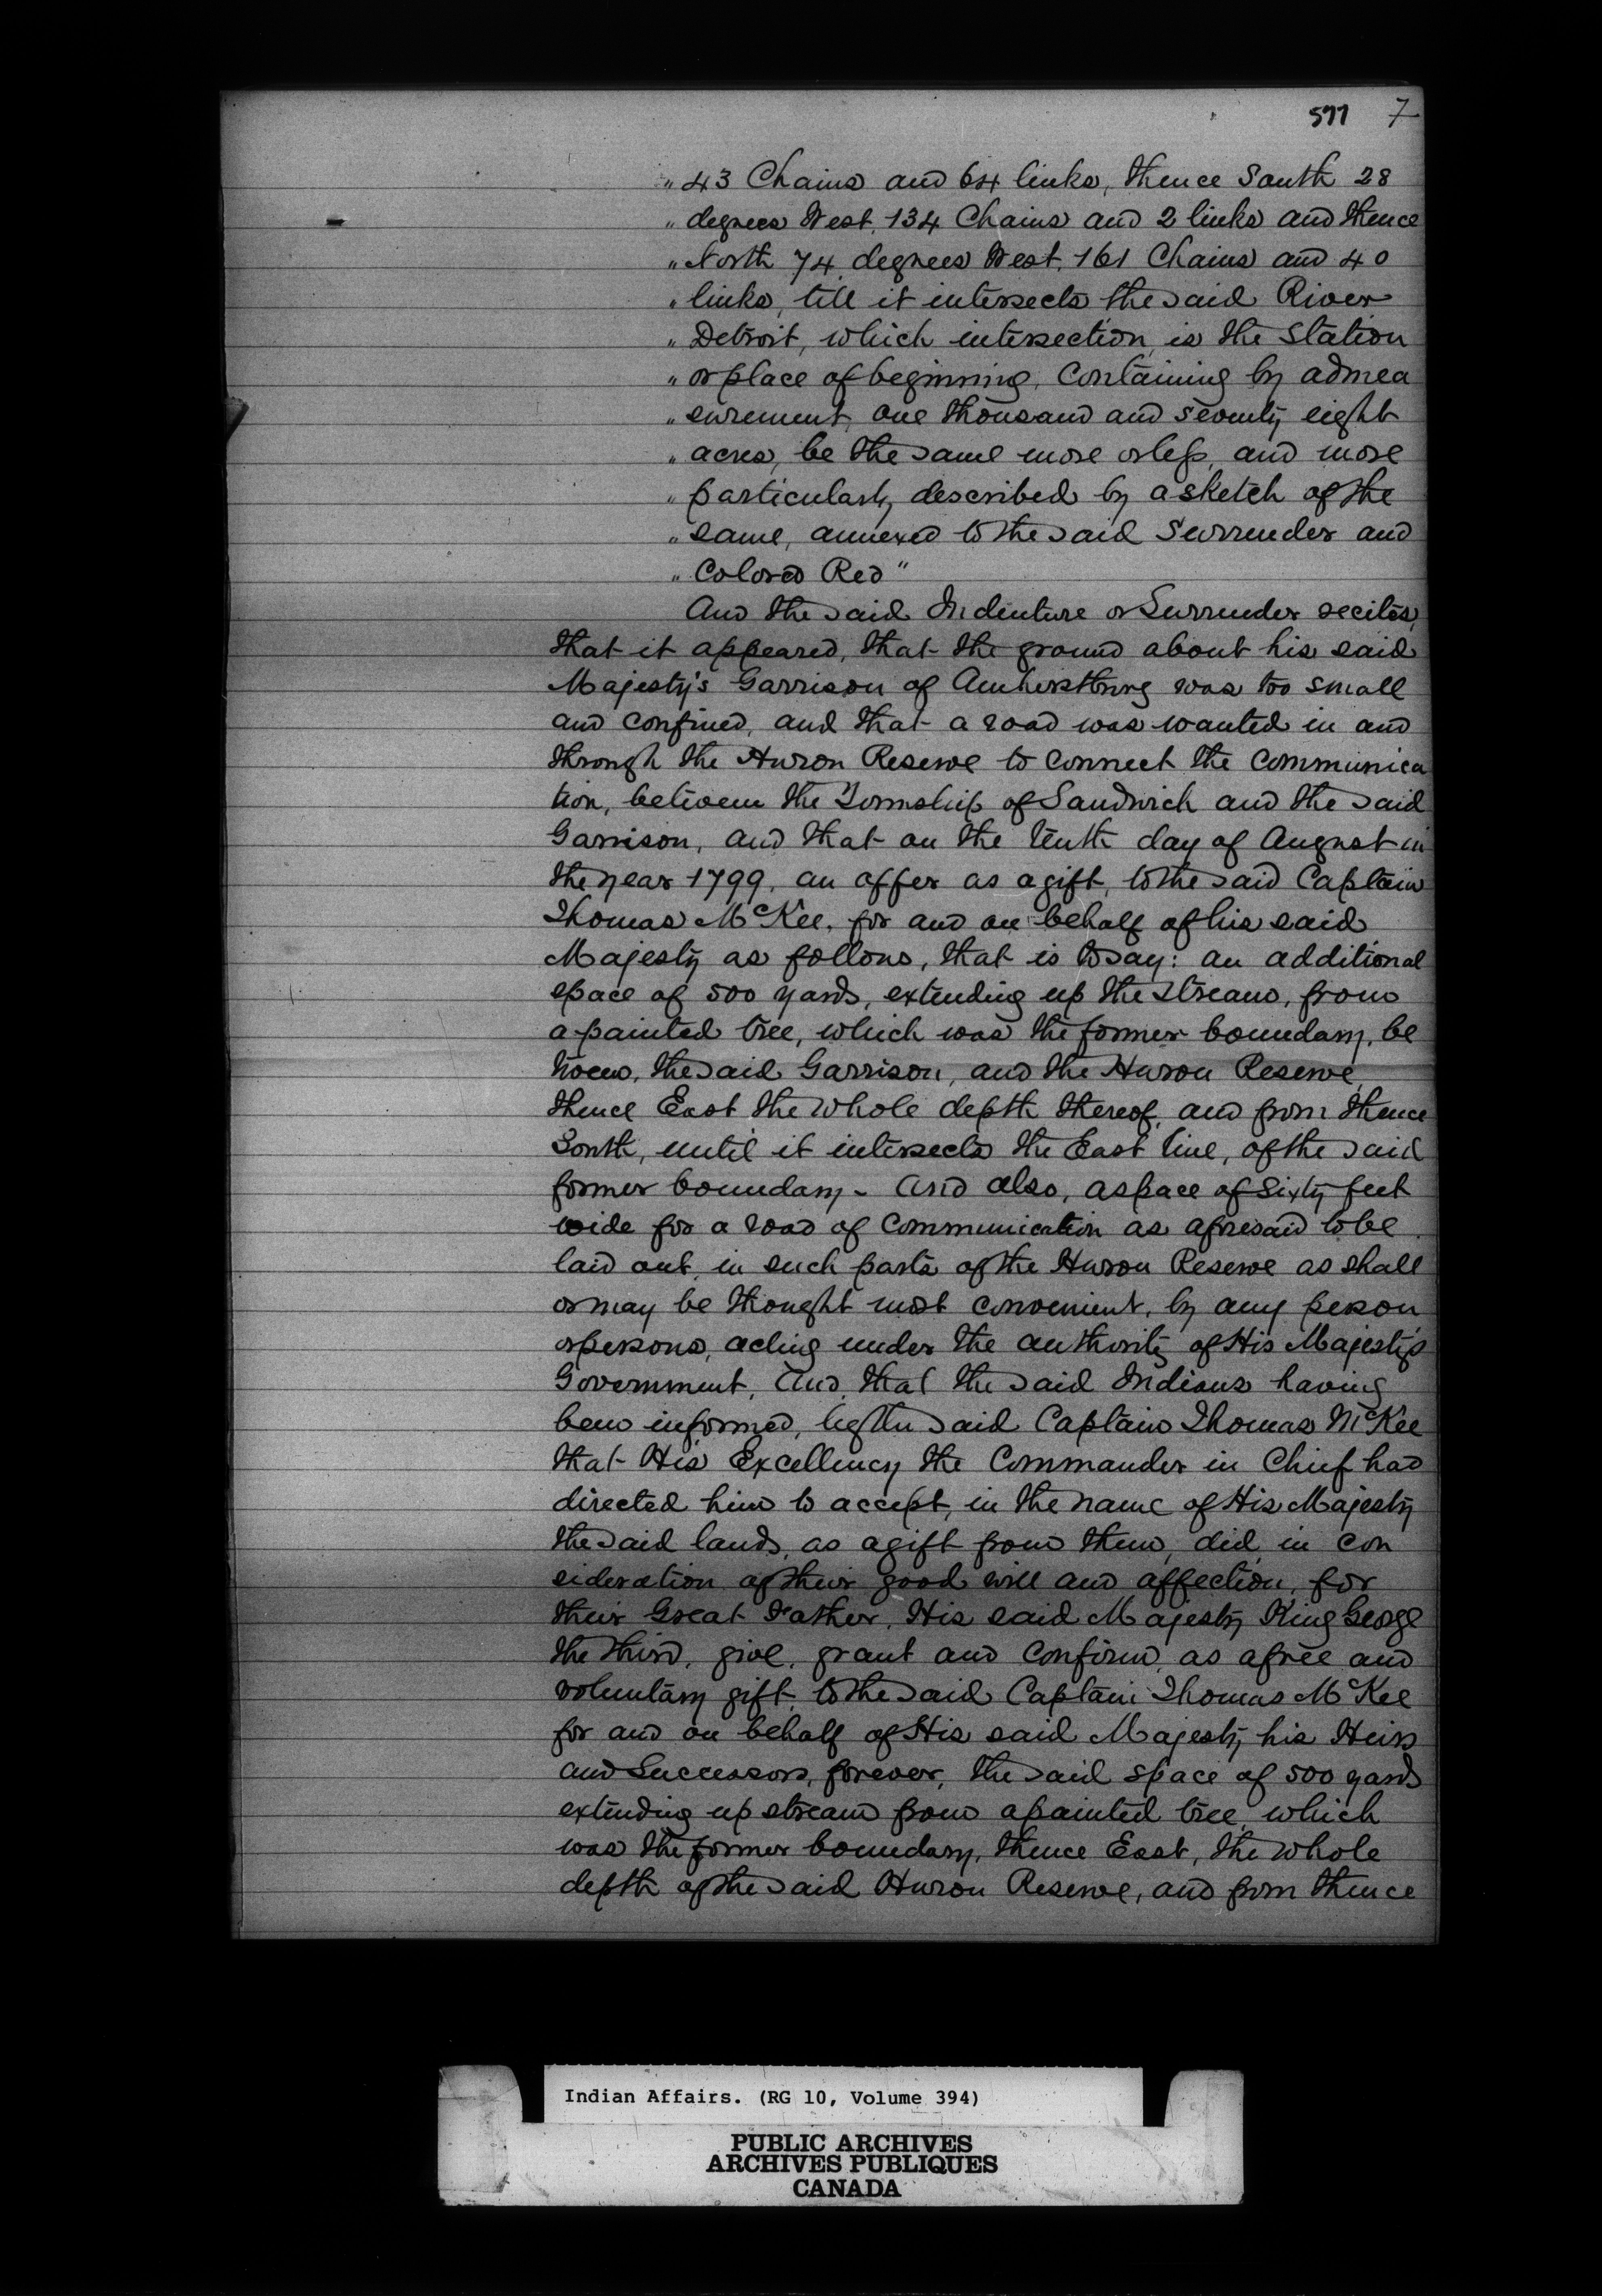 577 7
" 43 Chains and 64 links, thence South 28
" degrees West, 134 Chains and 2 links and thence
" North 74 degrees West, 161 Chains and 40
" links, till it intersects the said River
" Detroit, which intersection, is the Station
" or place of beginning, Containing by admea
" surement, one thousand and seventy eight
" acres, be the same more or less, and more
" particularly described by a sketch of the
" same, annexed to the said Surrender and
" Colored Red "
And the said Indenture or Surrender recites,
that it appeared, that the ground about his said
Majesty's Garrison of Amherstburg was too small
and confined, and that a road was wanted in and
through the Huron Reserve to connect the communica
tion, between the Township of Sandwich and the said
Garrison, and that on the tenth day of August in
the year 1799, an offer as a gift, to the said Captain
Thomas McKee, for and on behalf of his said
Majesty as follows, that is to say: an additional
space of 500 yards, extending up the stream, from
a painted tree, which was the former boundary, be
tween, the said Garrison, and the Huron Reserve,
thence East the whole depth thereof, and from thence
South, until it intersects the East line, of the said
former boundary - And also, a space of Sixty feet
wide for a road of communication as aforesaid to be
laid out, in such parts of the Huron Reserve as shall
or may be thought most convenient, by any person
or persons, acting under the authority of His Majesty's
Government, And, that the said Indians having
been informed, by the said Captain Thomas McKee
that His Excellency the Commander in Chief had
directed him to accept, in the name of His Majesty
the said lands, as a gift from them, did, in con
sideration of their good will and affection, for
their Great Father, His said Majesty King George
the third, give, grant and confirm, as a free and
voluntary gift, to the said Captain Thomas McKee
for and on behalf of His said Majesty, his Heirs
and Successors, forever, the said space of 500 yards
extending up stream from a painted tree, which
was the former boundary, thence East, the whole
depth of the said Huron Reserve, and from thence
Indian Affairs. (RG 10, Volume 394)
PUBLIC ARCHIVES
ARCHIVES PUBLIQUES
CANADA